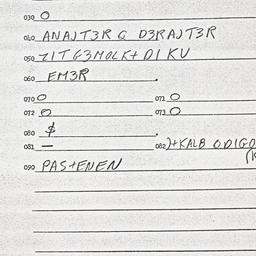 030 O
040 ANAJT3R G D3RAJT3R
050 ZITG3MOLKT DIKU
060 EM3R
070 O 071 O
072 O 073 O
080 $
081 — 082 )+KALB ODIGO
090 PAS+ENEN